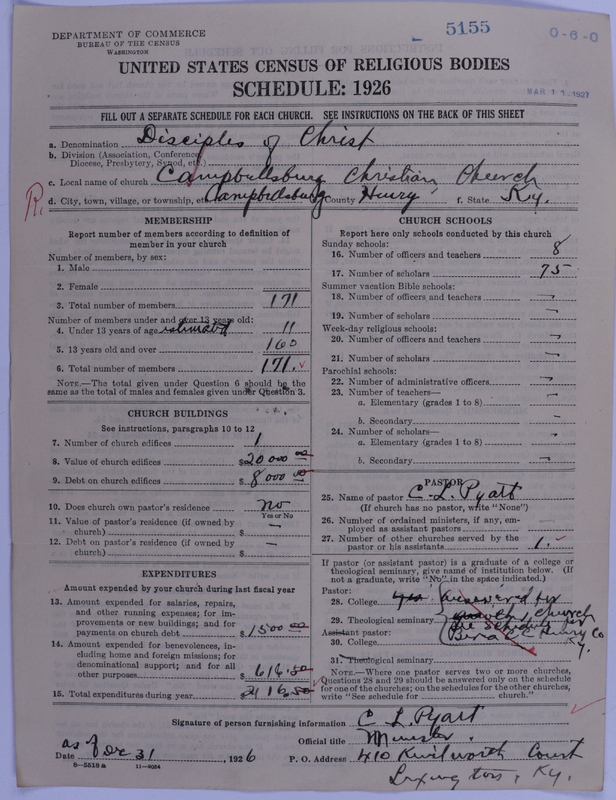 DEPARTMENT OF COMMERCE
BUREAU OF THE CENSUS
WASHINGTON
5155
0-6-0
UNITED STATES CENSUS OF RELIGIOUS BODIES
SCHEDULE: 1926
MAR 11 1927
FILL OUT A SEPARATE SCHEDULE FOR EACH CHURCH. SEE INSTRUCTIONS ON THE BACK OF THIS SHEET
a. Denomination Disciples of Christ
b. Division (Association, Conference,
Diocese, Presbytery, Synod, etc.)
c. Local name of church Campbellsburg Christian Church
R. d. City, town, village, or township, etc. Campbellsburg County Henry f. State Ky.
MEMBERSHIP
Report number of members according to definition of
member in your church
Number of members, by sex:
1. Male
2. Female
3. Total number of members 171
Number of members under and over 13 years old:
4. Under 13 years of age estimated 11
5. 13 years old and over 160
6. Total number of members 171.
NOTE.—The total given under Question 6 should be the
same as the total of males and females given under Question 3.
CHURCH BUILDINGS
See instructions, paragraphs 10 to 12
7. Number of church edifices 1
8. Value of church edifices $20 000 00
9. Debt on church edifices $8 000 00
10. Does church own pastor's residence no
Yes or No
11. Value of pastor's residence (if owned by
church) $ —
12. Debt on pastor's residence (if owned by
church) $ —
EXPENDITURES
Amount expended by your church during last fiscal year
13. Amount expended for salaries, repairs,
and other running expenses; for im-
provements or new buildings; and for
payments on church debt $1500 00
14. Amount expended for benevolences, in-
cluding home and foreign missions; for
denominational support; and for all
other purposes 616.50
15. Total expenditures during year $2116.50
CHURCH SCHOOLS
Report here only schools conducted by this church
Sunday schools:
16. Number of officers and teachers 8
17. Number of scholars 75
Summer vacation Bible schools:
18. Number of officers and teachers
19. Number of scholars
Week-day religious schools:
20. Number of officers and teachers
21. Number of scholars
Parochial schools:
22. Number of administrative officers
23. Number of teachers—
a. Elementary (grades 1 to 8)
b. Secondary
24. Number of scholars—
a. Elementary (grades 1 to 8)
b. Secondary
PASTOR
25. Name of pastor C. L. Pyatt
(If church has no pastor, write "None")
26. Number of ordained ministers, if any, em-
ployed as assistant pastors —
27. Number of other churches served by the
pastor or his assistants 1.
If pastor (or assistant pastor) is a graduate of a college or
theological seminary, give name of institution below. (If
not a graduate, write "No" in the space indicated.)
Pastor:
28. College yes answered for
29. Theological seminary church
Assistant pastor: see schedule for
30. College C C Henry Co
Ky.
31. Theological seminary
NOTE.—Where one pastor serves two or more churches,
Questions 28 and 29 should be answered only on the schedule
for one of the churches; on the schedules for the other churches,
write "See schedule for church."
Signature of person furnishing information C L Pyatt
Official title Minister
as of Dec 31
Date 1926 P. O. Address 410 Kenilworth Court
8—5518 a 11—9034
Lexington, Ky.